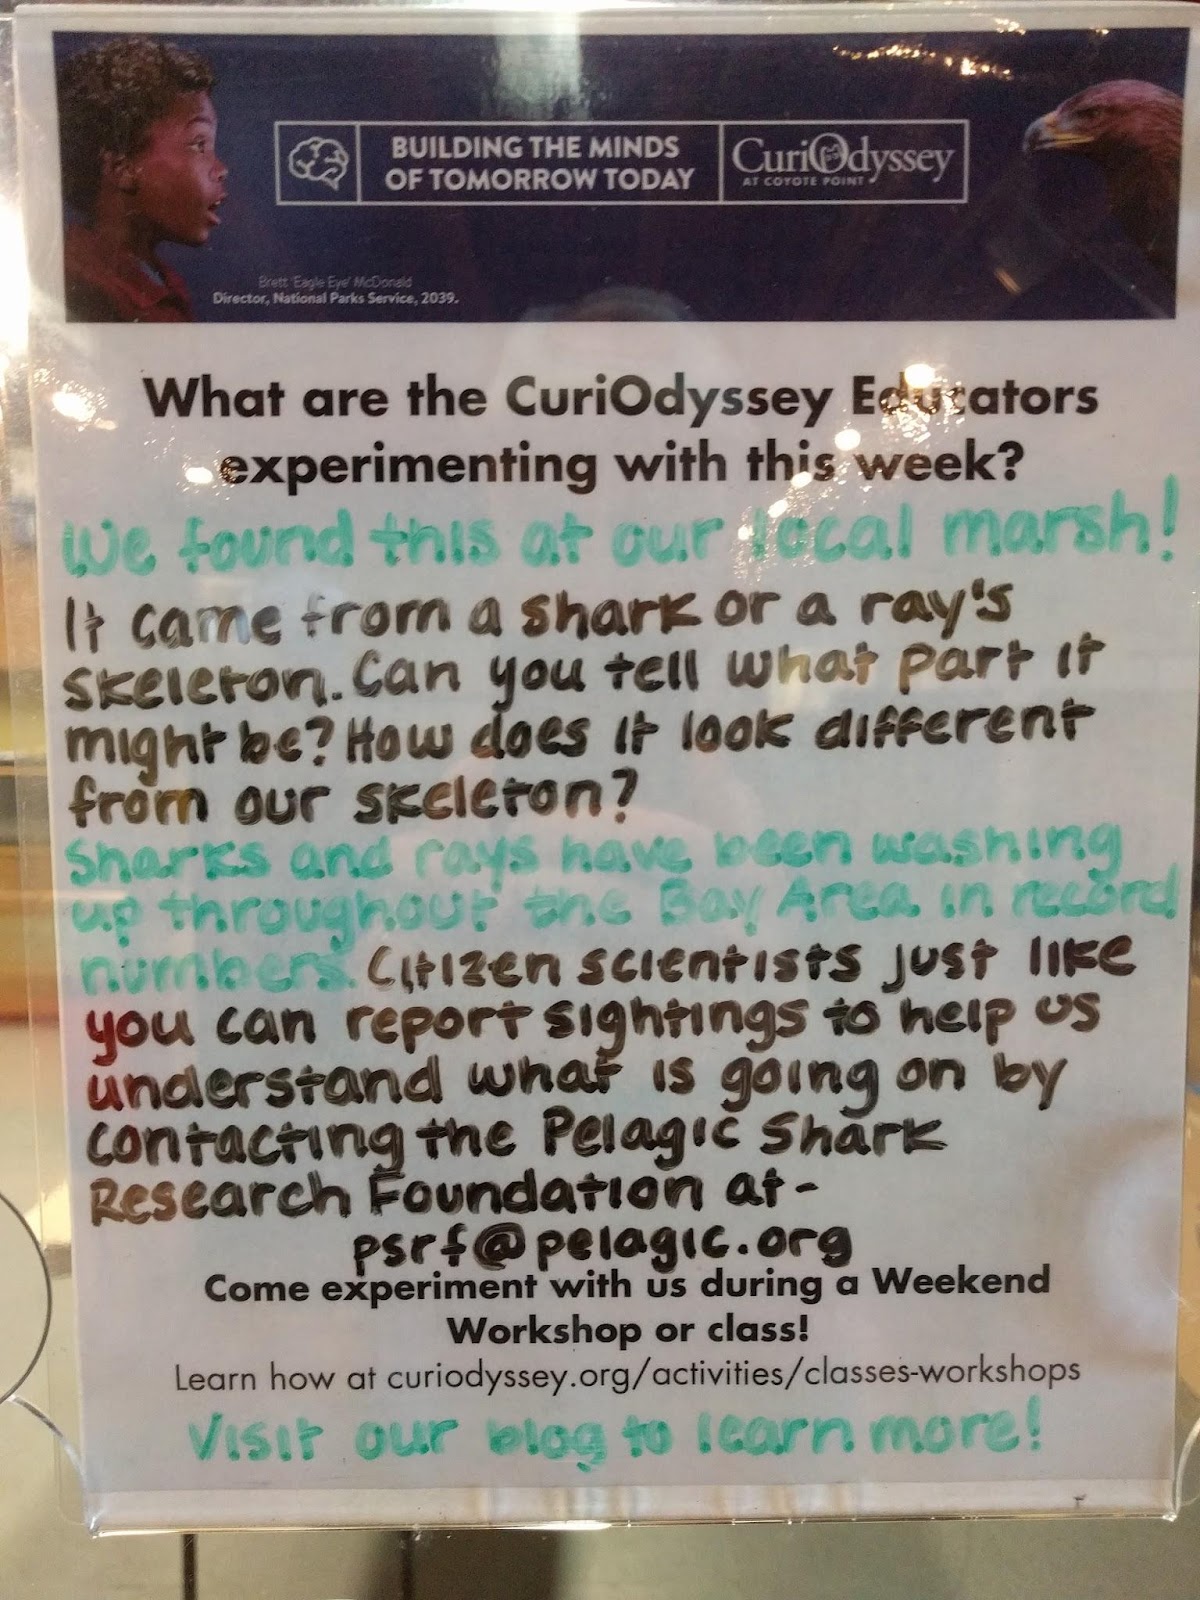 BUILDING THE MINDS
OF TOMORROW TODAY
CuriOdyssey
AT COYOTE POINT
Brett 'Eagle Eye' McDonald
Director, National Parks Service, 2039.
What are the CuriOdyssey Educators
experimenting with this week?
We found this at our local marsh!
It came from a shark or a ray's
skeleton. Can you tell what part it
might be? How does it look different
from our skeleton?
Sharks and rays have been washing
up throughout the Bay Area in record
numbers. Citizen scientists just like
you can report sightings to help us
understand what is going on by
contacting the Pelagic Shark
Research Foundation at-
psrf@pelagic.org
Come experiment with us during a Weekend
Workshop or class!
Learn how at curiodyssey.org/activities/classes-workshops
Visit our blog to learn more!